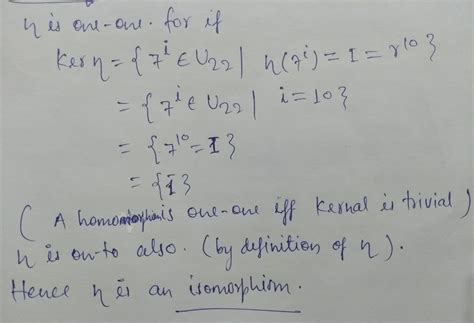 η is one-one. for if
Ker η = { 7^i ∈ U_22 | η(7^i) = I = r^10 }
= { 7^i ∈ U_22 | i = 10 }
= { 7^10 = I }
= { I }
( A homomorphism is one-one iff Kernal is trivial )
η is on-to also. (by definition of η ).
Hence η is an isomorphism.